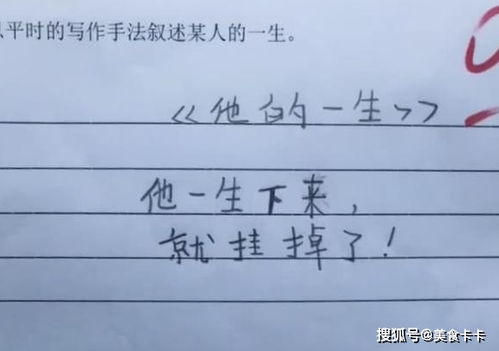 平时的写作手法叙述某人的一生。
《他的一生》
他一生下来，
就挂掉了！
搜狐号@美食卡卡